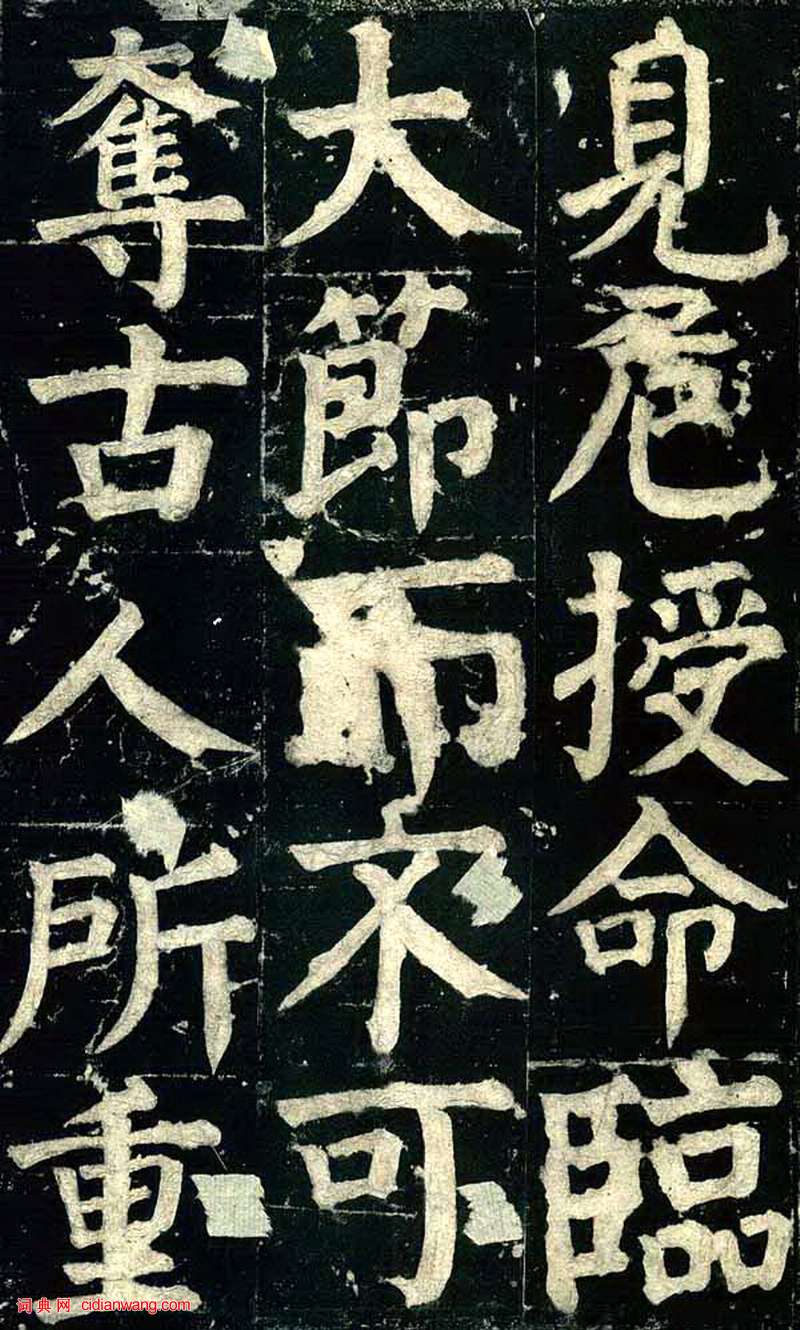 見危授命臨
大節而不可
奪古人所重
词典网 cidianwang.com